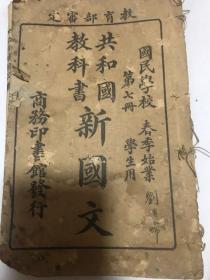 教育部審定
國民學校
春季始業
學生用
第七冊
共和國
教科書
新國文
商務印書館發行